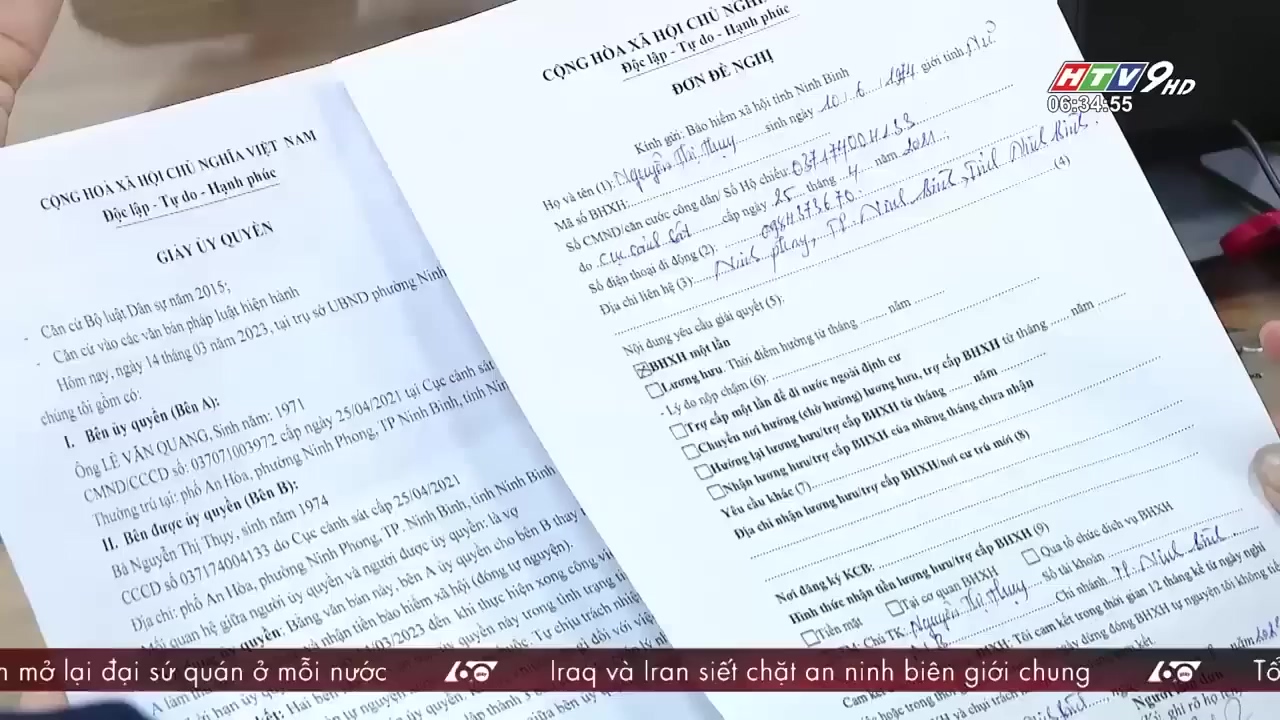 CỘNG HOÀ XÃ HỘI CHỦ NGHĨA VIỆT NAM
Độc lập - Tự do - Hạnh phúc
GIẤY ỦY QUYỀN
- Căn cứ Bộ luật Dân sự năm 2015;
- Căn cứ vào các văn bản pháp luật hiện hành
Hôm nay, ngày 14 tháng 03 năm 2023, tại trụ sở UBND phường Ninh
chúng tôi gồm có:
I. Bên ủy quyền (Bên A):
Ông LÊ VĂN QUANG, Sinh năm: 1971
CMND/CCCD số: 037071003972 cấp ngày 25/04/2021 tại Cục cảnh sát
Thường trú tại: phố An Hòa, phường Ninh Phong, TP Ninh Bình, tỉnh Ninh
II. Bên được ủy quyền (Bên B):
Bà Nguyễn Thị Thụy, sinh năm 1974
CCCD số 037174004133 do Cục cảnh sát cấp 25/04/2021
Địa chỉ: phố An Hòa, phường Ninh Phong, TP. Ninh Bình, tỉnh Ninh Bình
Mối quan hệ giữa người ủy quyền và người được ủy quyền: là vợ
quyền: Bằng văn bản này, bên A ủy quyền cho bên B thay
và nhận tiền bảo hiểm xã hội (đóng tự nguyện).
/03/2023 đến khi thực hiện xong công việ
CỘNG HÒA XÃ HỘI CHỦ NGHĨA
Độc lập - Tự do - Hạnh phúc
ĐƠN ĐỀ NGHỊ
Kính gửi: Bảo hiểm xã hội tỉnh Ninh Bình
Họ và tên (1): Nguyễn Thị Thụy sinh ngày 10 / 6 / 1974 giới tính Nữ
Mã số BHXH:
Số CMND/căn cước công dân/ Số Hộ chiếu: 037174004133
do Cục cảnh sát cấp ngày 25 tháng 4 năm 2021
Số điện thoại di động (2): 0984373670
Địa chỉ liên hệ (3): Ninh Phong, TP. Ninh Bình, Tỉnh Ninh Bình
(4)
Nội dung yêu cầu giải quyết (5):
BHXH một lần
Lương hưu. Thời điểm hưởng từ tháng ...... năm ......
- Lý do nộp chậm (6):
Trợ cấp một lần để đi nước ngoài định cư
Chuyển nơi hưởng (chờ hưởng) lương hưu, trợ cấp BHXH từ tháng ...... năm ......
Hưởng lại lương hưu/trợ cấp BHXH từ tháng ...... năm ......
Nhận lương hưu/trợ cấp BHXH của những tháng chưa nhận
Yêu cầu khác (7)
Địa chỉ nhận lương hưu/trợ cấp BHXH/nơi cư trú mới (8)
Nơi đăng ký KCB:
Hình thức nhận tiền lương hưu/trợ cấp BHXH (9)
Tiền mặt Tại cơ quan BHXH Qua tổ chức dịch vụ BHXH
Chủ TK: Nguyễn Thị Thụy Số tài khoản
Chi nhánh TP. Ninh Bình
BHXH: Tôi cam kết trong thời gian 12 tháng kể từ ngày nghỉ
HTV9 HD
06:34:55
mở lại đại sứ quán ở mỗi nước
60 giây
Iraq và Iran siết chặt an ninh biên giới chung
60 giây